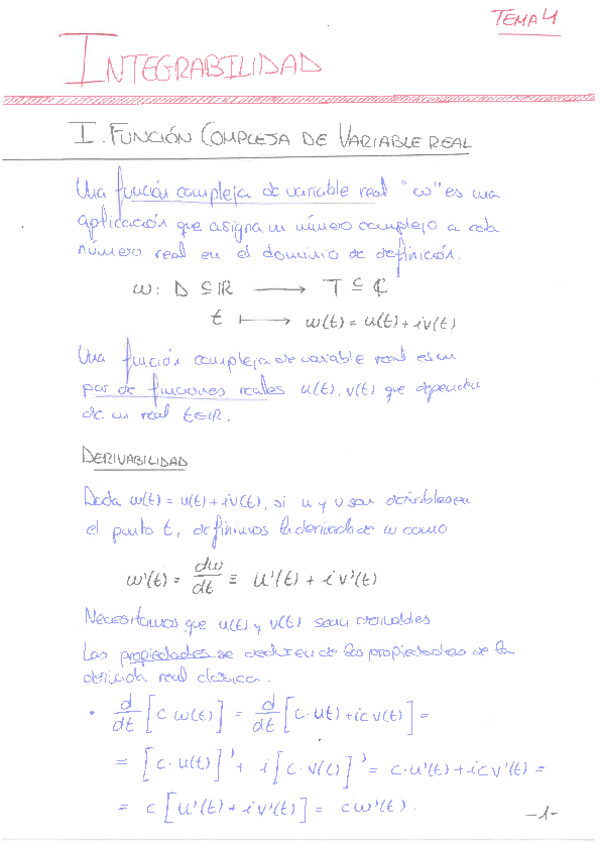 TEMA 4
INTEGRABILIDAD
I. FUNCIÓN COMPLEJA DE VARIABLE REAL
Una función compleja de variable real "ω" es una
aplicación que asigna un número complejo a cada
número real en el dominio de definición.
ω: D ⊆ ℝ ⟶ T ⊆ ℂ
t ⟼ ω(t) = u(t) + iv(t)
Una función compleja de variable real es un
par de funciones reales u(t), v(t) que dependen
de un real t∈ℝ.
DERIVABILIDAD
Dada ω(t) = u(t) + iv(t), si u y v son derivables en
el punto t, definimos la derivada de ω como
ω'(t) = dω/dt ≡ u'(t) + i v'(t)
Necesitamos que u(t) y v(t) sean derivables
Las propiedades se deducen de las propiedades de la
derivada real clásica.
• d/dt [c ω(t)] = d/dt [c·u(t) + icv(t)] =
= [c·u(t)]' + i[c·v(t)]' = c·u'(t) + icv'(t) =
= c[u'(t) + iv'(t)] = cω'(t).
-1-